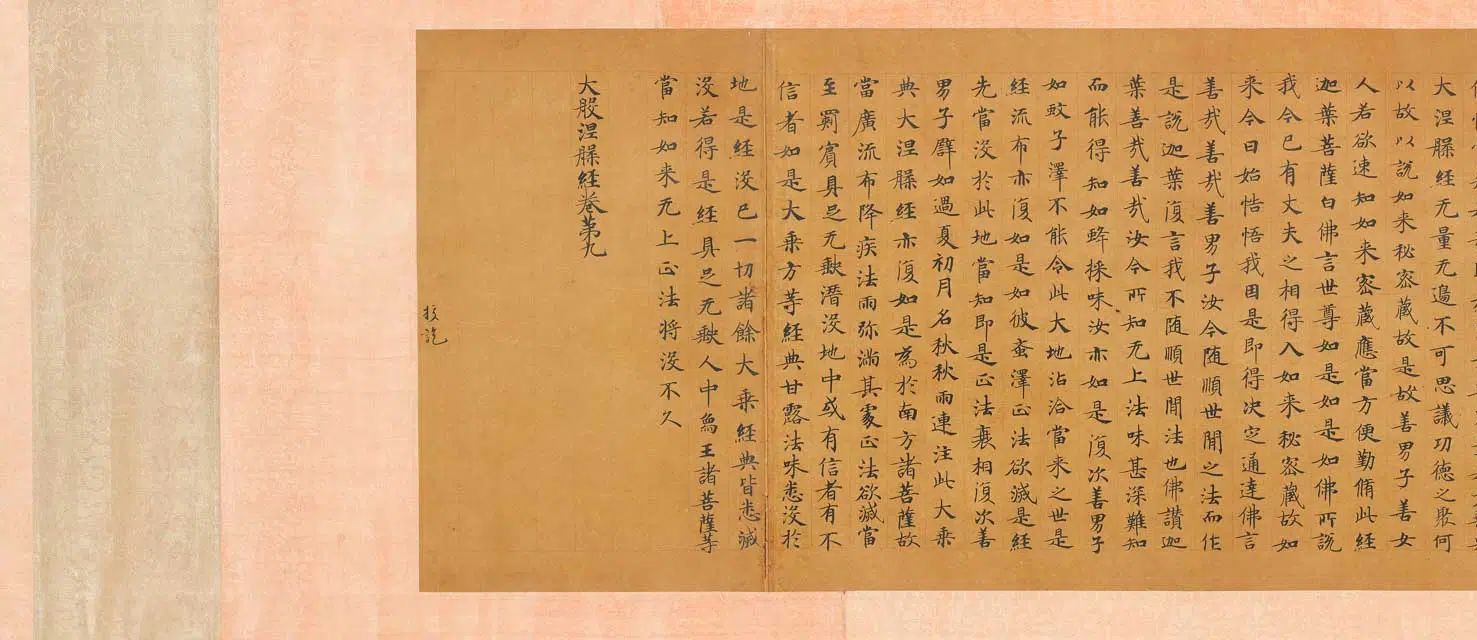 大涅槃經无量无邊不可思議功德之聚何
以故以說如来秘密藏故是故善男子善女
人若欲速知如来密藏應當方便勤脩此經
迦葉菩薩白佛言世尊如是如是如佛所說
我今已有丈夫之相得入如来秘密藏故如
来今日始悟悟我因是即得決定通達佛言
善哉善哉善男子汝今随順世間之法而作
是說迦葉復言我不随順世間法也佛讚迦
葉善哉善哉汝今所知无上法味甚深難知
而能得知如蜂採味汝亦如是復次善男子
如蚊子澤不能令此大地沾洽當来之世是
經流布亦復如是如彼蚉澤正法欲滅是經
先當沒於此地當知即是正法衰相復次善
男子譬如過夏初月名秋秋雨連注此大乘
典大涅槃經亦復如是為於南方諸菩薩故
當廣流布降疾法雨弥滿其處正法欲滅當
至罽賓具足无缺潛沒地中或有信者有不
信者如是大乘方等經典甘露法味悉沒於
地是經沒已一切諸餘大乘經典皆悉滅
沒若得是經具足无缺人中為王諸菩薩等
當知如来无上正法将沒不久
大般涅槃經卷第九
校訖